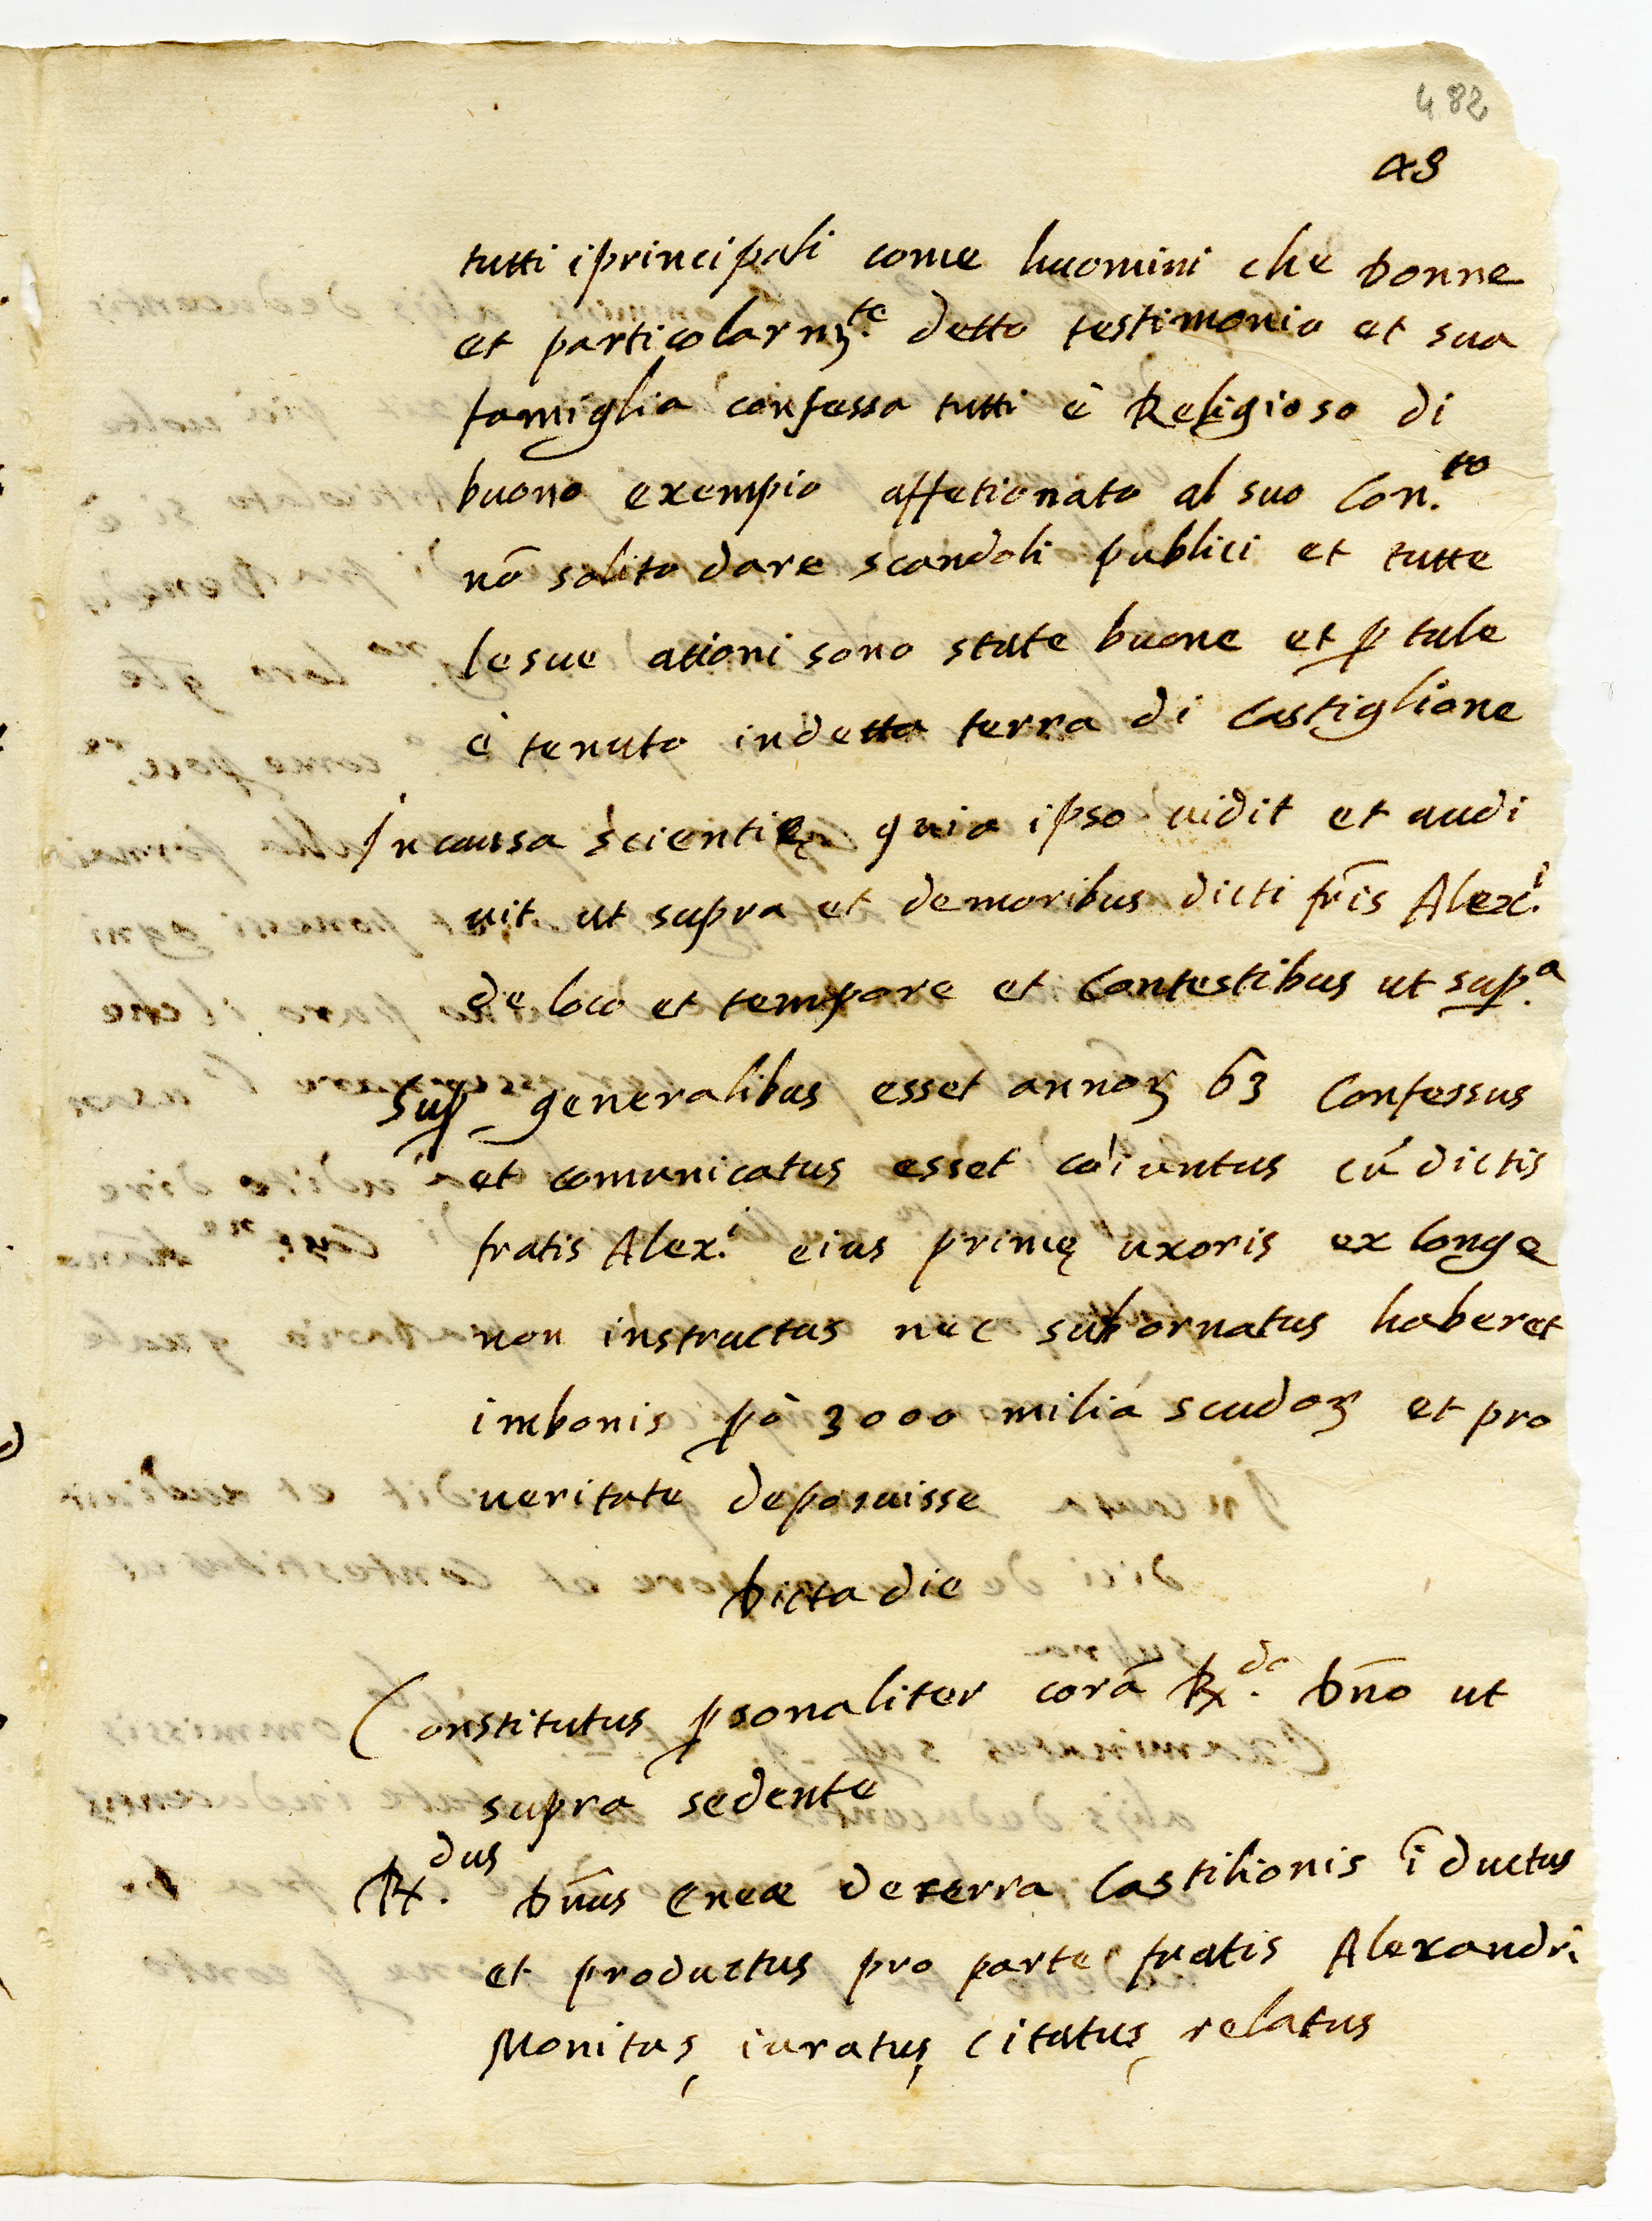 482
48
tutti i principali come huomini che Donne
et particolarm.te detto testimonio et sua
famiglia confessa tutti è Religioso di
buono exempio affetionato al suo Con.to
nō solito dare scandoli publici et tutte
le sue ationi sono state buone et ꝑ tale
è tenuto in detta terra di Castiglione
In causa scientię quia ipso uidit et audi
uit ut supra et de moribus dicti fr̄is Alex.i
de loco et tempore et Contestibus ut sup.a
Suꝑ generalibus esset annoꝝ 63 Confessus
et comunicatus esset coiuntus cū dictis
fratis Alex.i eius primę uxoris ex longe
non instructus nec subornatus haberet
imbonis 3000 milia scudoꝝ et pro
ueritate deposuisse
Dicta die
Constitutus ꝑsonaliter corā R.do Dn̄o ut
supra sedente
R.dus Dn̄us Eneæ de terra Castilionis īductus
et productus pro parte fratis Alexandri
Monitus, iuratus, citatus, relatus